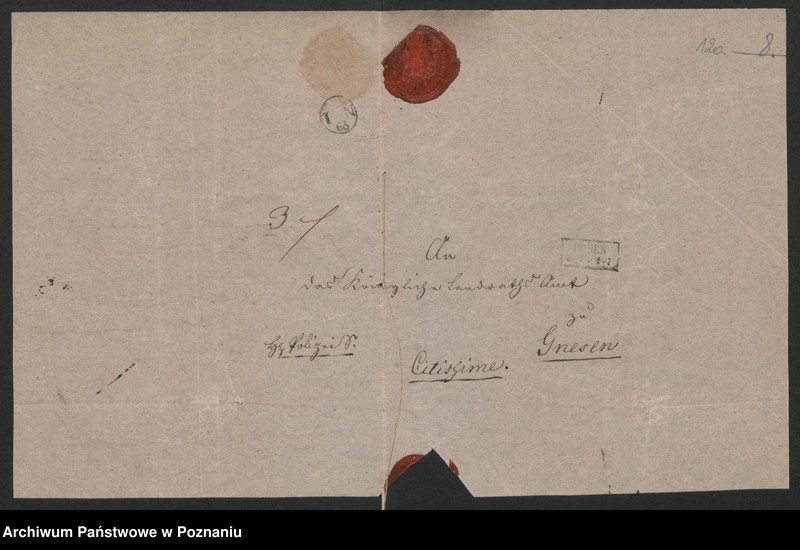 12a 8.
63
3
An
das Königliche Landraths Amt
zu
Polizei S.
Gnesen
Citissime.
Archiwum Państwowe w Poznaniu